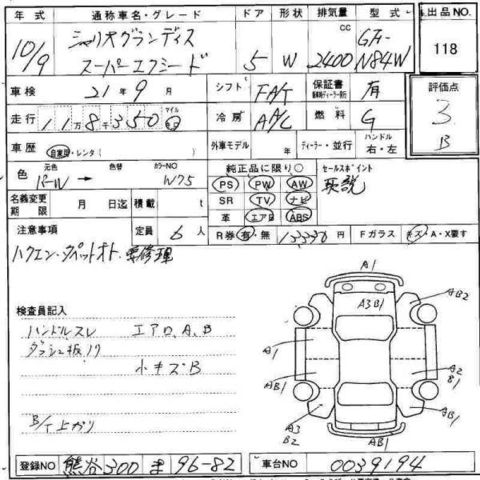 年式 通称車名・グレード ドア 形状 排気量 型式 出品NO.
10/9 シャリオグランディス スーパーエクシード 5 W 2400 CC GF-N84W 118
車検 21年9月 シフト FA/T 保証書 有 評価点
走行 118350 マイル km 冷房 A/C 燃料 G 3
車歴 自家用・レンタ( ) 外車モデル 年 ディーラー・並行 ハンドル 右・左 B
色 元色 パールW → 色替 カラーNO W75
純正品に限り○ セールスポイント
PS PW AW 取説
名義変更期限 月 日迄 積載 t SR TV ナビ
革 エアB ABS
注意事項 定員 6人 R券 有・無 13330円 Fガラス キズ・A・X要す
ハクエン・タペットオト・要修理
検査員記入
ハンドルスレ エアロ、A、B
ダッシュ板ノリ
小キズB
B/T上ガリ
A1
A3B1
AB2
A1
A2
B1
AB1
A3
B2
AB1
AB1
登録NO 熊谷300ま96-82 車台NO 0039194